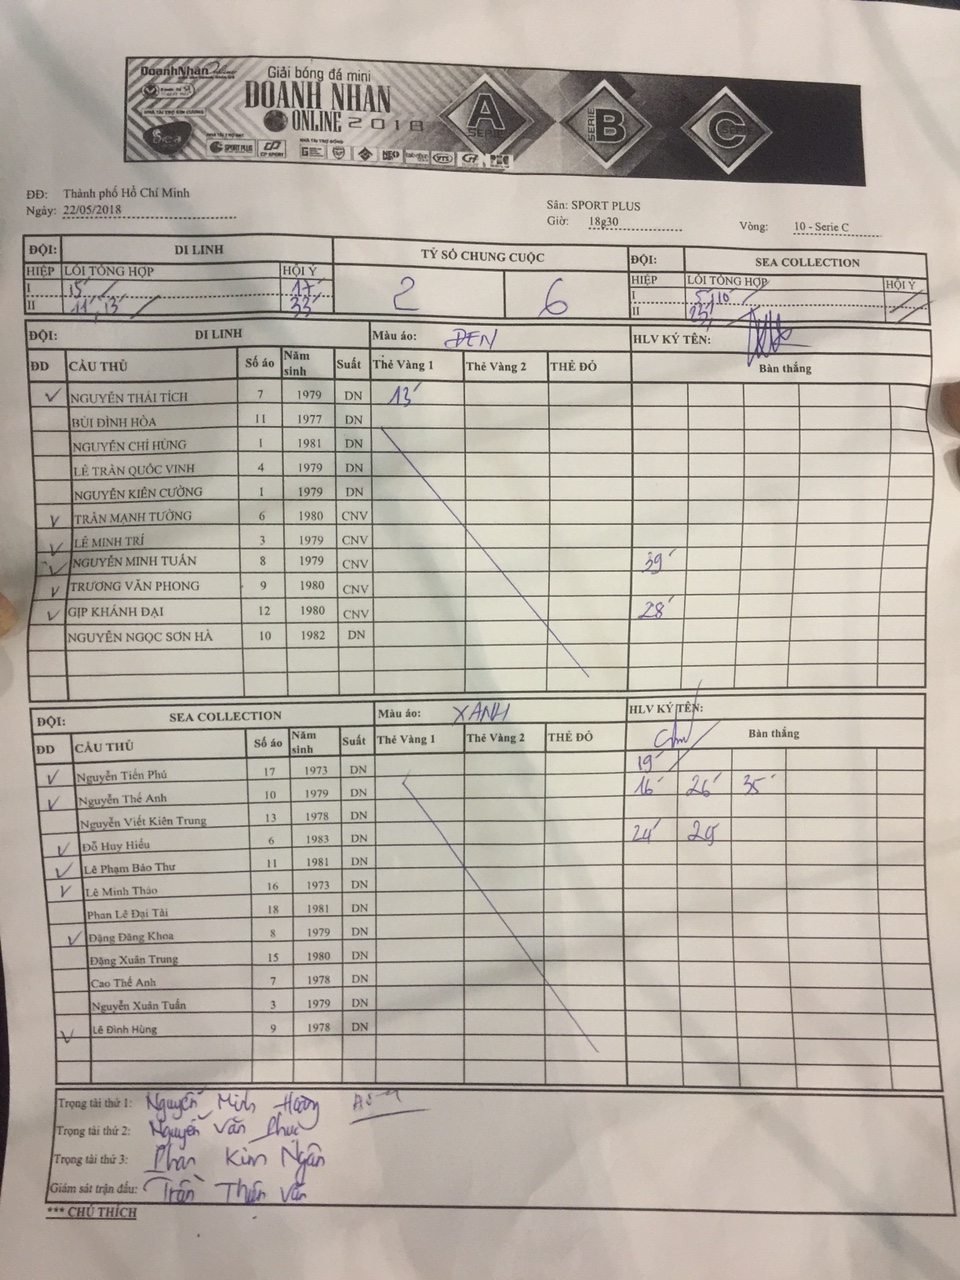 DoanhNhan Online
Giải bóng đá mini
DOANH NHAN
ONLINE 2018
SPORT PLUS
A SERIE
SERIE B
C SERIE
ĐĐ: Thành phố Hồ Chí Minh
Ngày: 22/05/2018
Sân: SPORT PLUS
Giờ: 18g30
Vòng: 10 - Serie C
ĐỘI: DI LINH TỶ SỐ CHUNG CUỘC ĐỘI: SEA COLLECTION
HIỆP LỖI TỔNG HỢP HỘI Ý 2 6 HIỆP LỖI TỔNG HỢP HỘI Ý
I 15' 17' I 5' 10'
II 11', 13' 33' II
ĐỘI: DI LINH Màu áo: ĐEN HLV KÝ TÊN:
ĐD CẦU THỦ Số áo Năm sinh Suất Thẻ Vàng 1 Thẻ Vàng 2 THẺ ĐỎ Bàn thắng
NGUYỄN THÁI TÍCH 7 1979 DN 13'
BÙI ĐÌNH HÒA 11 1977 DN
NGUYỄN CHÍ HÙNG 1 1981 DN
LÊ TRẦN QUỐC VINH 4 1979 DN
NGUYỄN KIÊN CƯỜNG 1 1979 DN
TRẦN MẠNH TƯỜNG 6 1980 CNV
LÊ MINH TRÍ 3 1979 CNV
NGUYỄN MINH TUẤN 8 1979 CNV 39'
TRƯƠNG VĂN PHONG 9 1980 CNV
GỊP KHÁNH ĐẠI 12 1980 CNV 28'
NGUYỄN NGỌC SƠN HÀ 10 1982 DN
ĐỘI: SEA COLLECTION Màu áo: XANH HLV KÝ TÊN:
ĐD CẦU THỦ Số áo Năm sinh Suất Thẻ Vàng 1 Thẻ Vàng 2 THẺ ĐỎ Bàn thắng
Nguyễn Tiến Phú 17 1973 DN 19'
Nguyễn Thế Anh 10 1979 DN 16' 26' 35'
Nguyễn Viết Kiên Trung 13 1978 DN
Đỗ Huy Hiếu 6 1983 DN 24' 29
Lê Phạm Bảo Thư 11 1981 DN
Lê Minh Thảo 16 1973 DN
Phan Lê Đại Tài 18 1981 DN
Đặng Đăng Khoa 8 1979 DN
Đặng Xuân Trung 15 1980 DN
Cao Thế Anh 7 1978 DN
Nguyễn Xuân Tuấn 3 1979 DN
Lê Đình Hùng 9 1978 DN
Trọng tài thứ 1: Nguyễn Minh
Trọng tài thứ 2: Nguyễn Văn Phúc
Trọng tài thứ 3: Phan Kim Ngân
Giám sát trận đấu: Trần Thiên Văn
*** CHÚ THÍCH